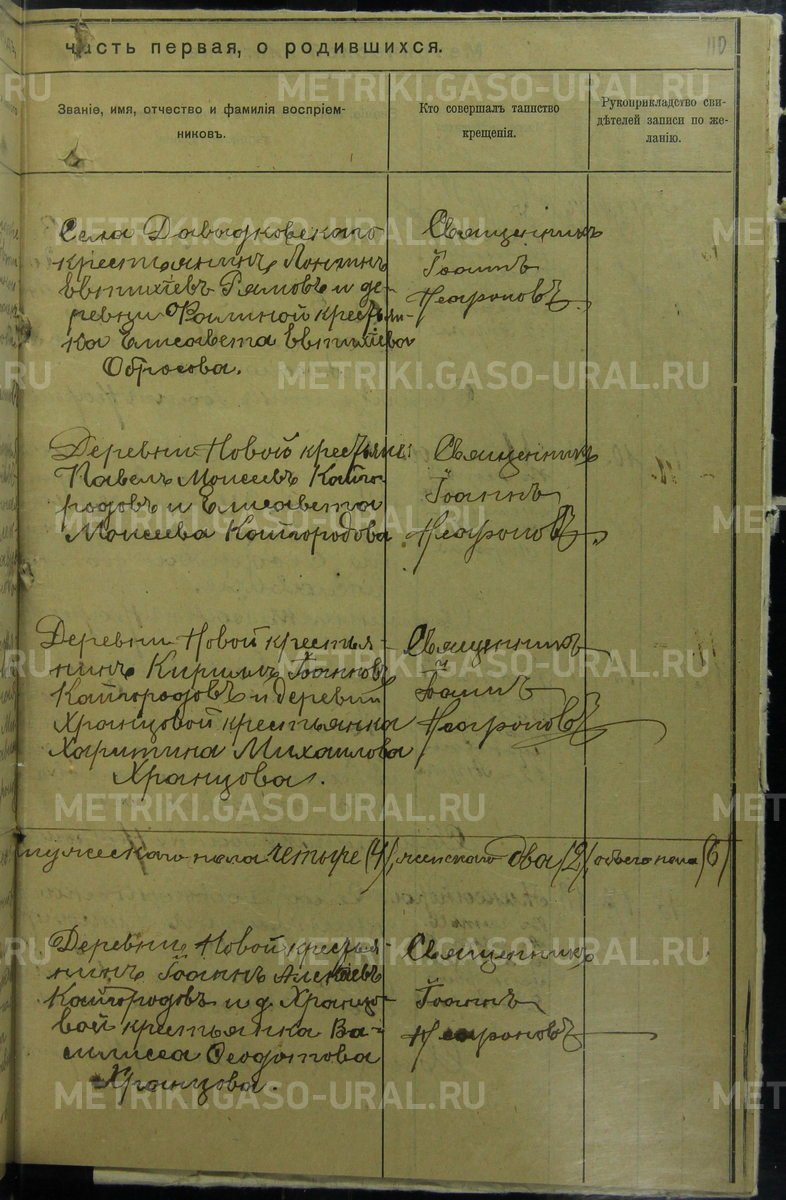 часть первая, о родившихся.
110
Званіе, имя, отчество и фамилія воспріем-
никовъ.
Кто совершалъ таинство
крещенія.
Рукоприкладство сви-
дѣтелей записи по же-
ланію.
Села Давыдковскаго
крестьянинъ Лонгинъ
Евтихіевъ и де-
ревни крестьян-
ка Елисавета Евтихіева
Обросова.
Священникъ
Іоаннъ
Неароновъ
Деревни Новой крестьяне
Павелъ Моисеевъ Кайго-
родовъ и Елисавета
Моисеева Кайгородова
Священникъ
Іоаннъ
Неароновъ
Деревни Новой крестья-
нинъ Кириллъ Іоанновъ
Кайгородовъ и деревни
Хранцовой крестьянка
Харитина Михаилова
Хранцова.
Священникъ
Іоаннъ
Неароновъ
мужескаго пола четыре (4) женскаго два (2) обоего пола (6)
Деревни Новой крестья-
нинъ Іоаннъ Алексѣевъ
Кайгородовъ и д. Хранцо-
вой крестьянка Ва-
силисса Ѳеодотова
Хранцова.
Священникъ
Іоаннъ
Неароновъ
METRIKI.GASO-URAL.RU